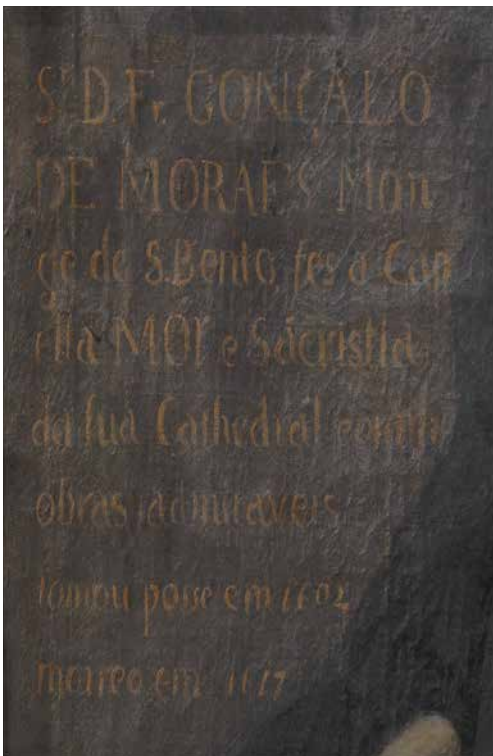 S.ʳ D. Fr. GONÇALO
DE MORAES Mon
ge de S. Bento, fes a Cap
ella MOR e Sacristia
da sua Cathedral
obras admiraveis
tomou posse em 1602
morreo em 1617